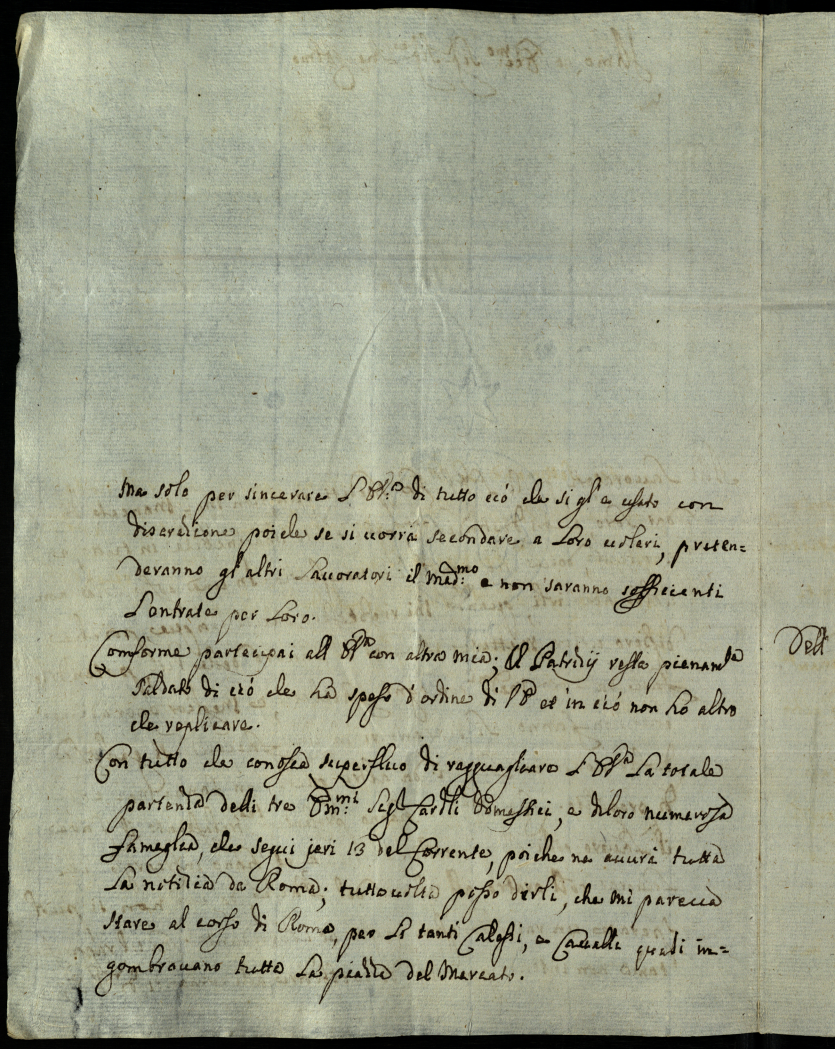 Ma solo per sincerare V. Ecc.a di tutto ciò che si gl'è usato con
discretione poiche se si vorrà secondare a Loro voleri, preten=
deranno gl'altri Lavoratori il med.mo e non saranno sofficienti
L'entrate per Loro.
Conforme partecipai all' con altra mia; Il Patridij resta pienam.te
saldato di ciò che hà speso d'ordine di et in ciò non hò altro
che replicare.
Con tutto che conosca superfluo di ragguagliare La totale
partenza delli tre Em.mi Sig.ri Card.li Domestici, e di loro numerosa
fameglia, che seguì jeri 13 del Corrente, poiche ne avvrà tutta
La notitia da Roma; tutta volta posso dirli, che mi pareva
stare al corso di Roma, per Le tanti Calessi, e Cavalli quali in=
gombravano tutta La piazza del Mercato.
Dell'